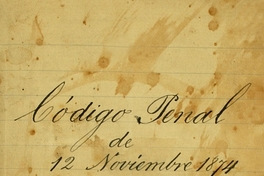 Código Penal
de
12 Noviembre 1874